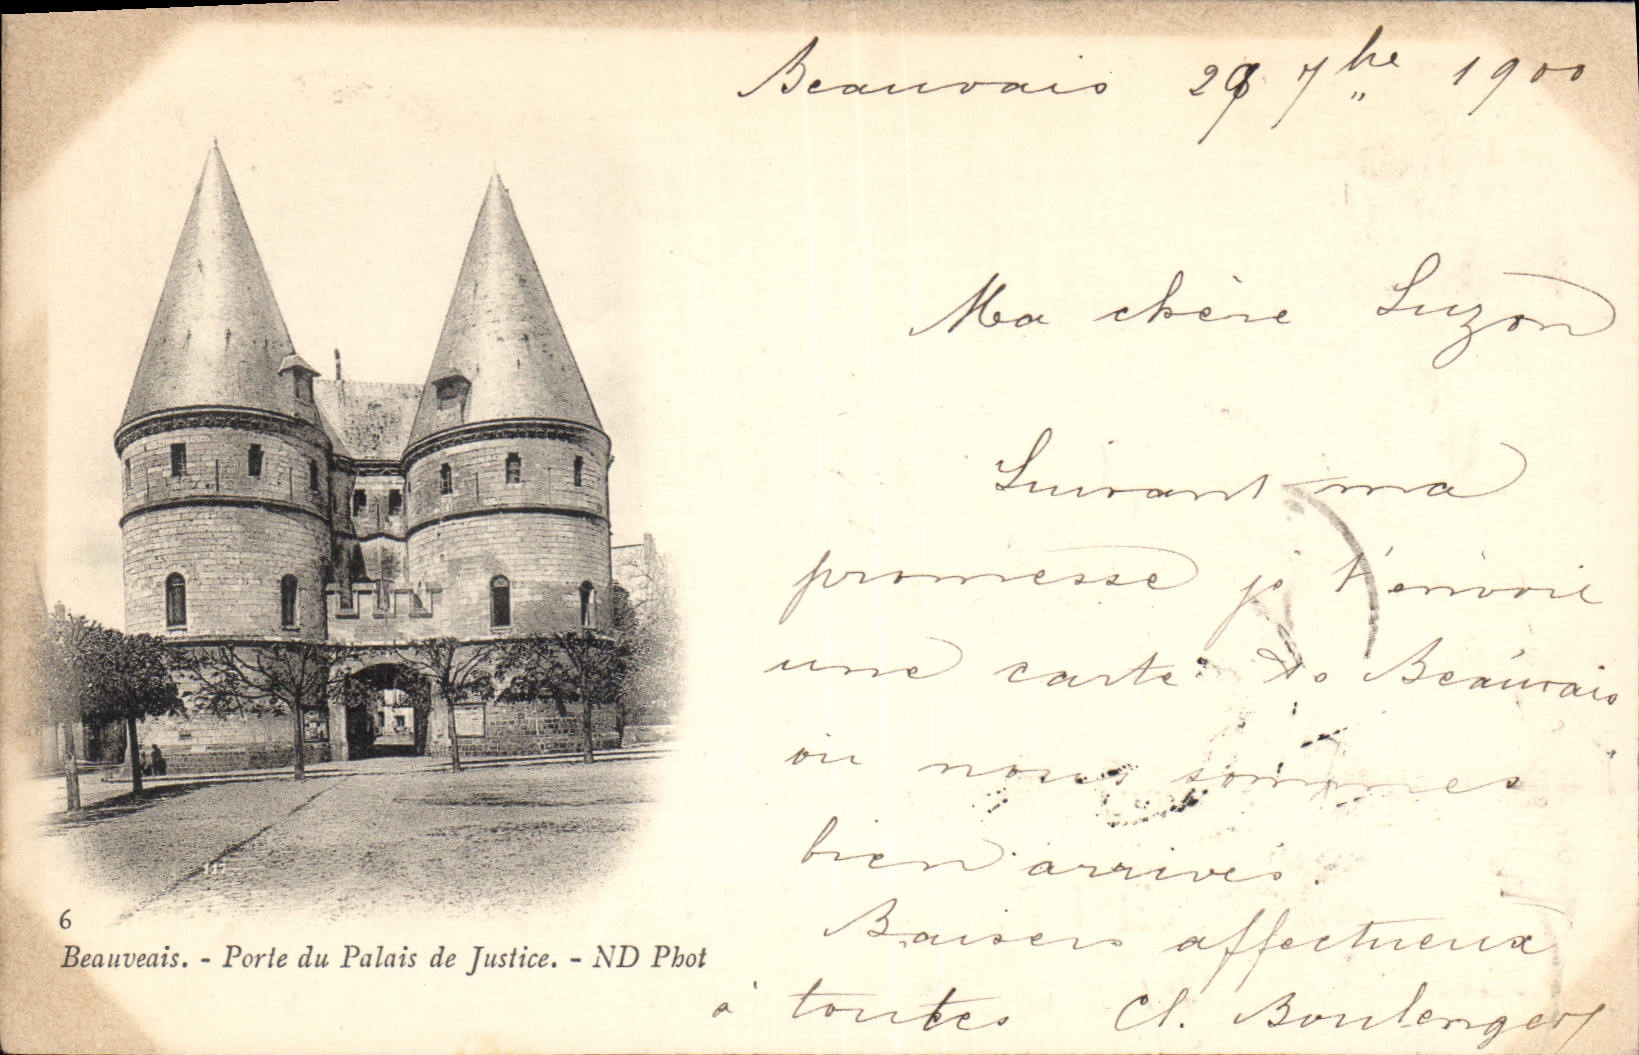 Beauvais 29 7bre 1900
Ma chère Suzon
Suivant ma
promesse je t'envoie
une carte de Beauvais
où nous sommes
bien arrivés.
Baisers affectueux
à toutes Cl. Boulenger
117
6
Beauveais. - Porte du Palais de Justice. - ND Phot